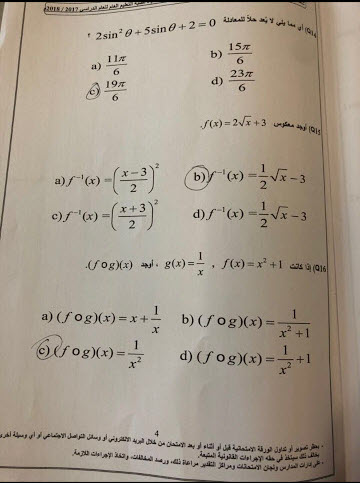 التعليم العام للعام الدراسي 2017 / 2018م
(Q14 أي مما يلي لا يُعد حلاً للمعادلة 2sin² θ + 5sin θ + 2 = 0 ؟
a) 11π/6 b) 15π/6
c) 19π/6 d) 23π/6
(Q15 أوجد معكوس f(x) = 2√x + 3.
a) f⁻¹(x) = ((x − 3)/2)² b) f⁻¹(x) = 1/2 √x − 3
c) f⁻¹(x) = ((x + 3)/2)² d) f⁻¹(x) = 1/2 √x − 3
(Q16 إذا كانت f(x) = x² + 1 ، g(x) = 1/x ، أوجد (f o g)(x).
a) (f o g)(x) = x + 1/x b) (f o g)(x) = 1/(x² + 1)
c) (f o g)(x) = 1/x² d) (f o g)(x) = 1/x² + 1
4
- يحظر تصوير أو تداول الورقة الامتحانية قبل أو أثناء أو بعد الامتحان من خلال البريد الالكتروني أو وسائل التواصل الاجتماعي أو أي وسيلة أخرى
يخالف ذلك سيتخذ في حقه الإجراءات القانونية المتبعة.
- على إدارات المدارس ولجان الامتحانات ومراكز التقدير مراعاة ذلك، ورصد المخالفات، واتخاذ الإجراءات اللازمة.